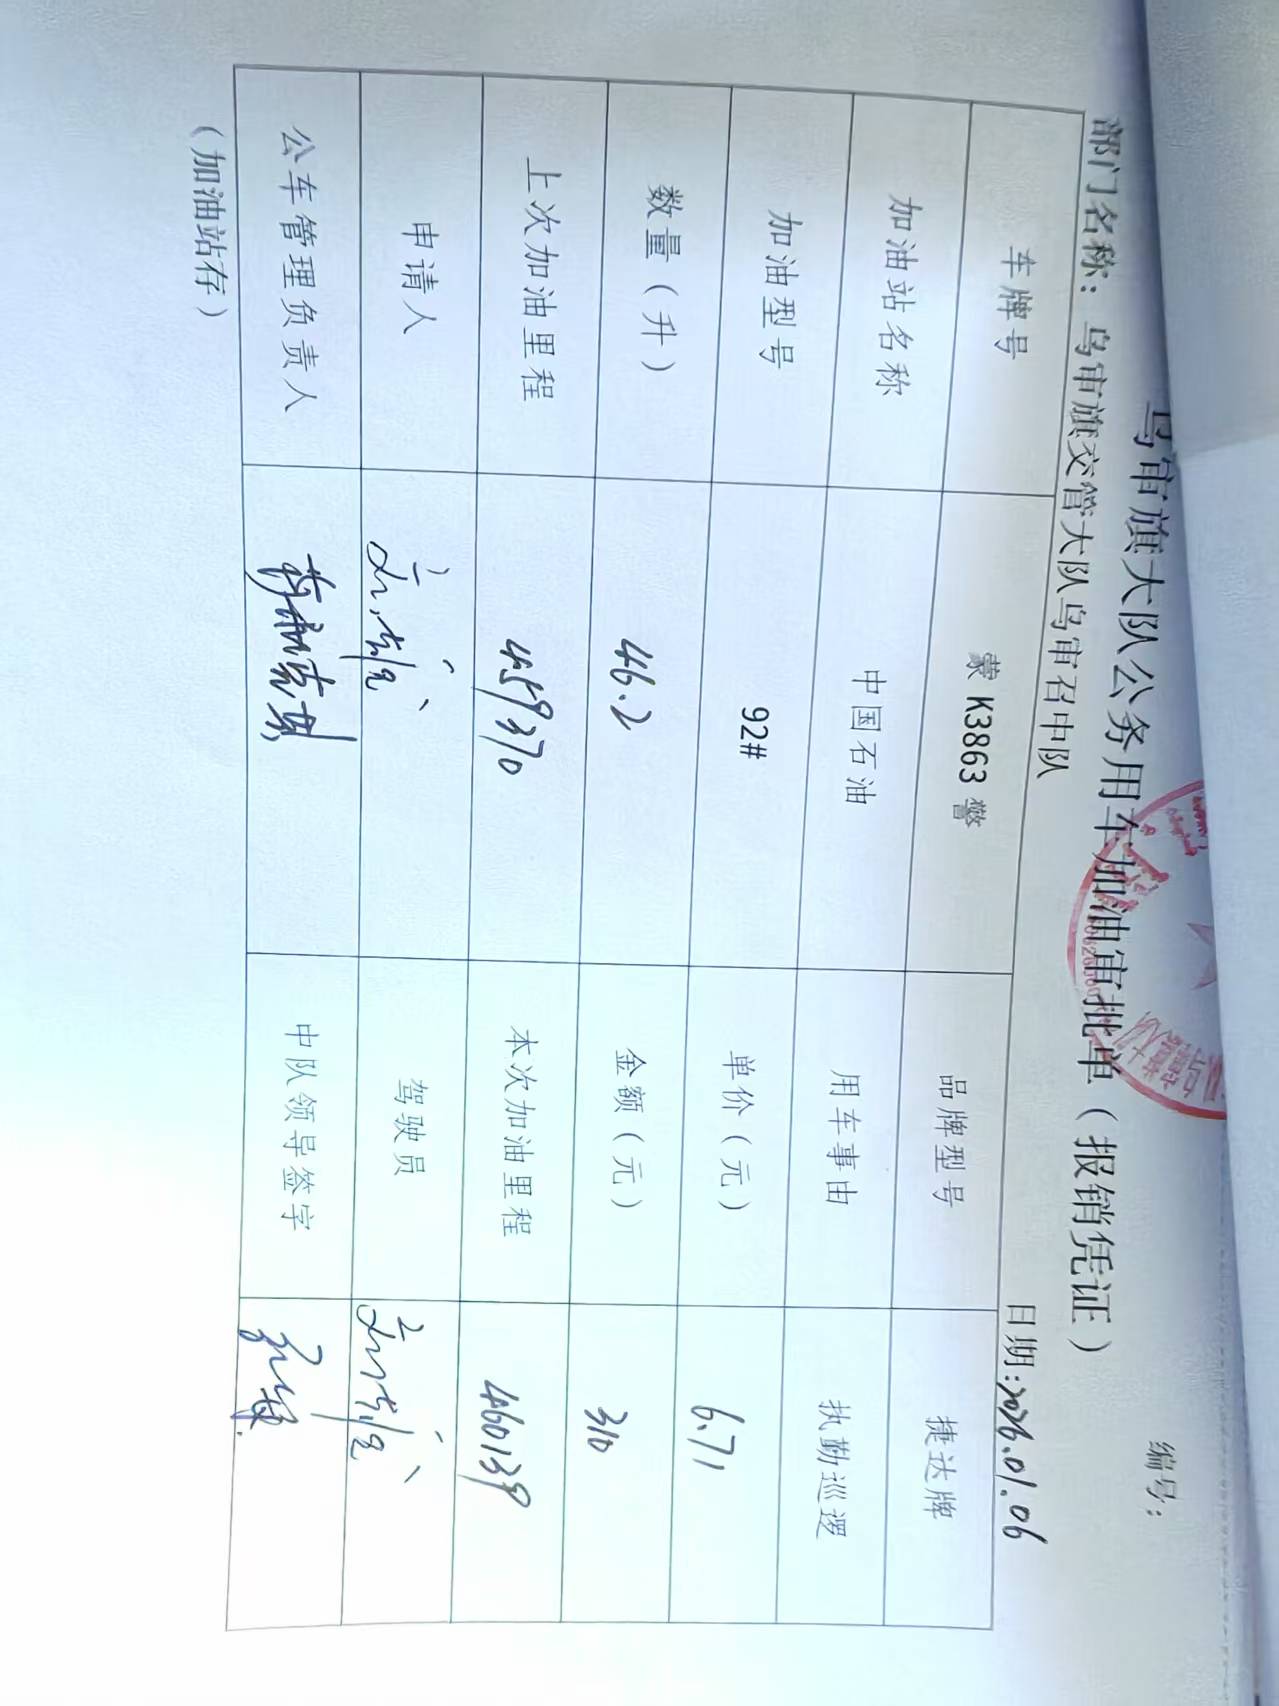 乌审旗大队公务用车加油审批单（报销凭证）
编号：
部门名称：乌审旗交管大队乌审召中队 日期:2026.01.06
车牌号 蒙 K3863 警 品牌型号 捷达牌
加油站名称 中国石油 用车事由 执勤巡逻
加油型号 92# 单价（元） 6.71
数量（升） 46.2 金额（元） 310
上次加油里程 459370 本次加油里程 460139
申请人 驾驶员
公车管理负责人 中队领导签字
（加油站存）